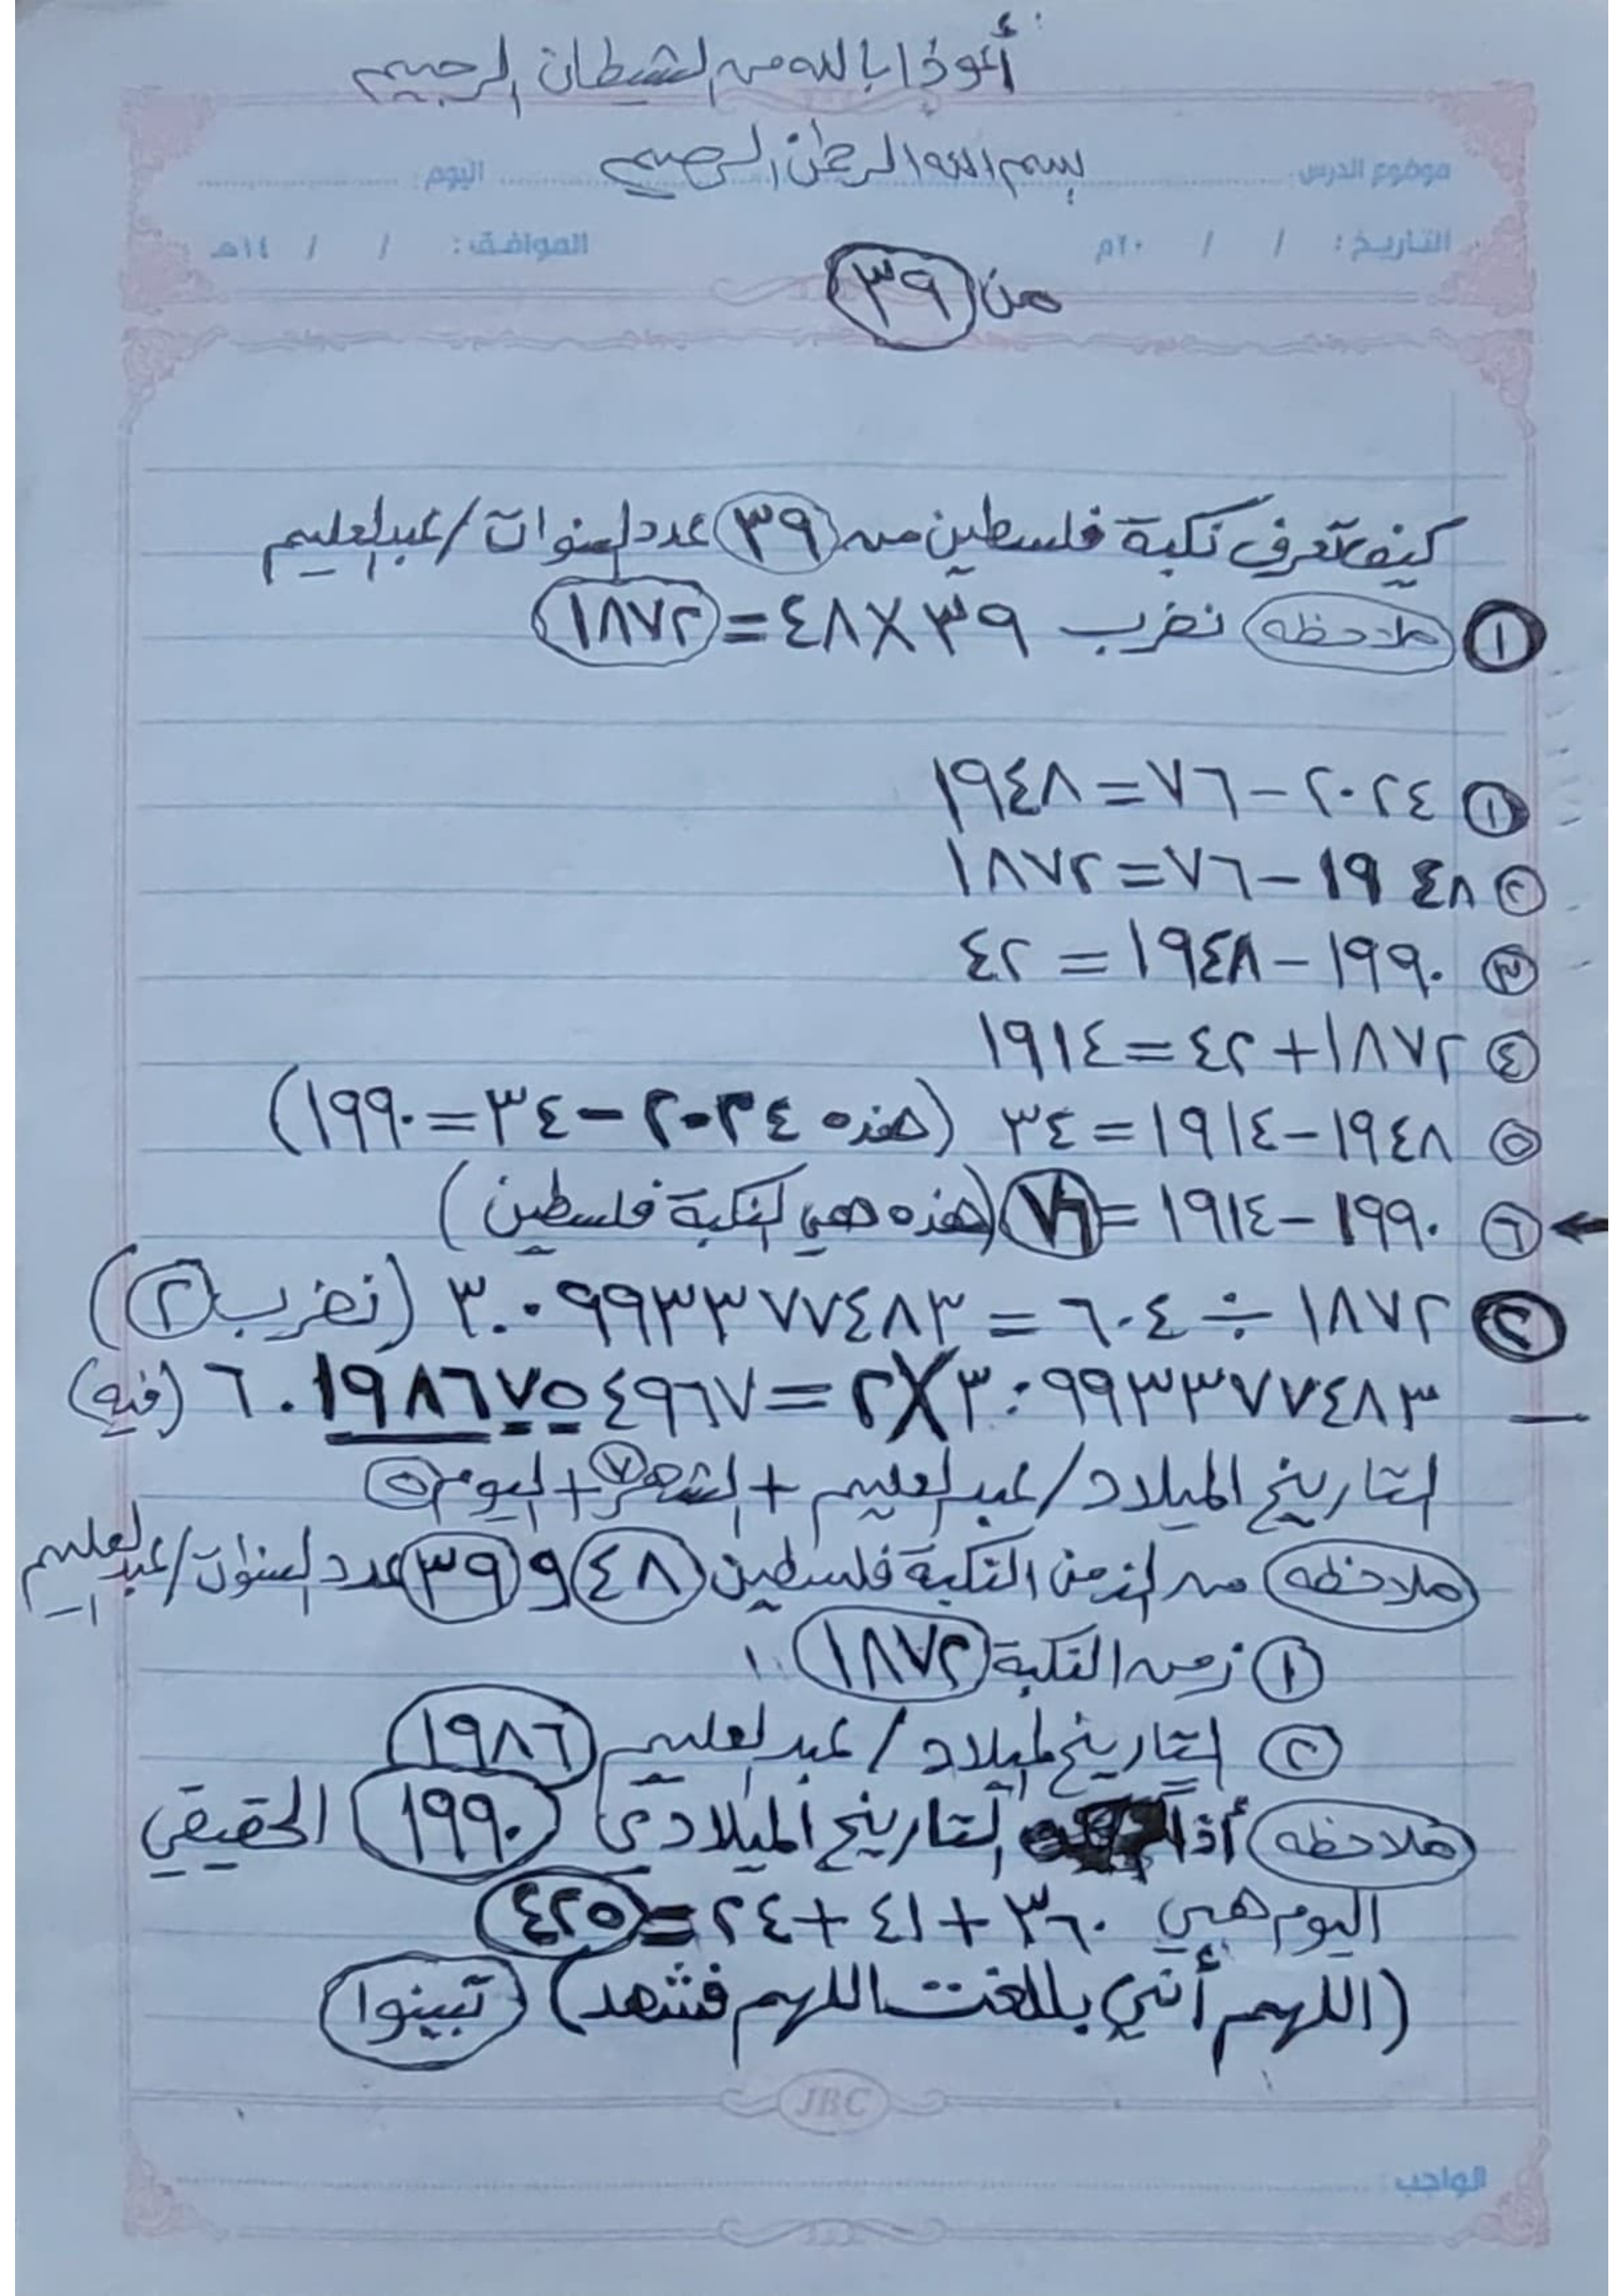 أعوذا بالله من الشيطان الرجيم
بسم الله الرحمن الرحيم
موضوع الدرس: اليوم:
التاريخ: / / ٢٠م الموافق: / / ١٤هـ
من ٣٩
كيف تعرف نكبة فلسطين من ٣٩ عدد السنوات / عبدالعليم
١ ملاحظه نضرب ٣٩×٤٨=١٨٧٢
١ ٢٠٢٤-٧٦=١٩٤٨
٢ ١٩٤٨-٧٦=١٨٧٢
٣ ١٩٩٠-١٩٤٨=٤٢
٤ ١٨٧٢+٤٢=١٩١٤
٥ ١٩٤٨-١٩١٤=٣٤ (هذه ٢٠٢٤-٣٤=١٩٩٠)
٦ ١٩٩٠-١٩١٤=٧٦ (هذه هي النكبة فلسطين)
٢ ١٨٧٢÷٦٠٤=٣.٠٩٩٣٣٧٧٤٨٣ (نضرب ٢)
٣.٠٩٩٣٣٧٧٤٨٣×٢=٦.١٩٨٦٧٥٤٩٦٧ (فيه)
التاريخ الميلاد / عبدالعليم + الشهر ٧ + اليوم ٥
ملاحظه من الزمن النكبة فلسطين ٤٨ و ٣٩ عدد السنوات / عبدالعليم
١ زمن النكبة ١٨٧٢
٢ التاريخ الميلاد / عبدالعليم ١٩٨٦
ملاحظه أذا التاريخ الميلادي ١٩٩٠ الحقيقي
اليوم هي ٣٦٠+٤١+٢٤=٤٢٥
(اللهم أني بللغت اللهم فشهد) تبينوا
JBC
الواجب: